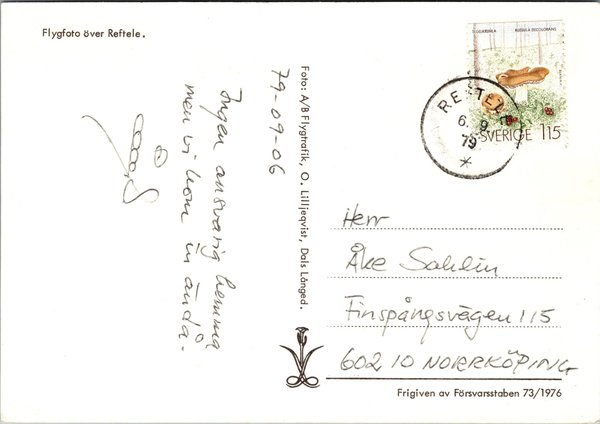 Flygfoto över Reftele.
79-09-06
Ingen ansvarig hemma
men vi kom in ändå.
Foto: A/B Flygtrafik, O. Lilljeqvist, Dals Långed.
SVERIGE 115
6. 9
79
Herr
Åke Sahlin
Finspångsvägen 115
602 10 NORRKÖPING
Frigiven av Försvarsstaben 73/1976